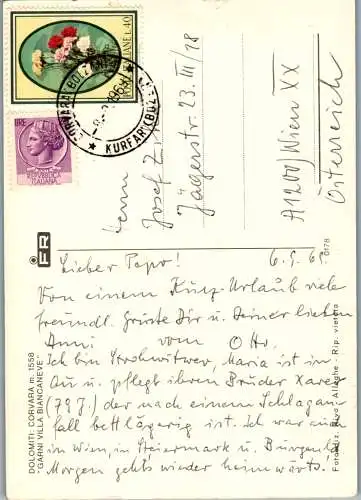 POSTE ITALIANE L. 40
LIRE
REPUBBLICA
ITALIANA
CORVARA (BOLZANO)
★ KURFAR (BOZEN) ★
Herrn
Josef
Jägerstr. 23. III/18
A1200/Wien XX
Österreich
Lieber Pepo! 6.9.69
Von einem Kurz-Urlaub viele
freundl. Grüsse Dir u. Deiner lieben
Anni vom Otto.
Ich bin Strohwitwer, Maria ist in
Au u. pflegt ihren Bruder Xaver
(79 J.) der nach einem Schlagan-
fall bettlägerig ist. Ich war auch
in Wien, in Steiermark u. Burgenld.
Morgen gehts wieder heimwärts.
FR
DOLOMITI - CORVARA m. 1558
"GARNI VILLA BIANCANEVE"
0178
Rip. vietata